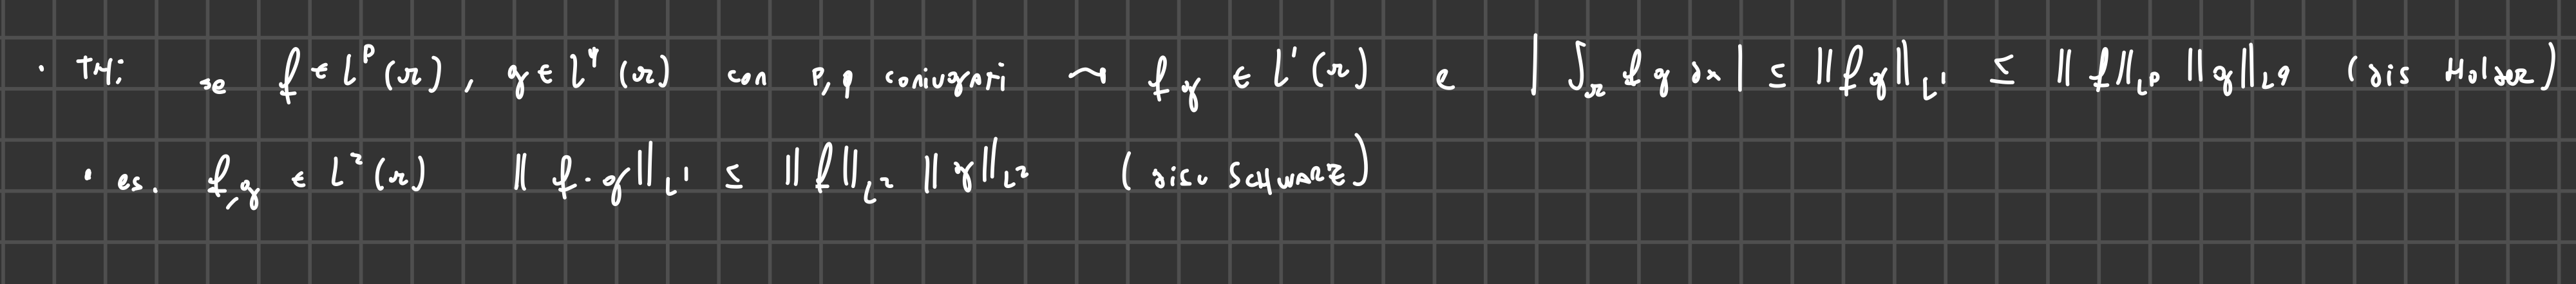 · TH: se f ∈ L^p(Ω), g ∈ L^q(Ω) con p, q coniugati ⇝ fg ∈ L^1(Ω) e |∫_Ω f g dx| ≤ ||fg||_{L^1} ≤ ||f||_{L^p} ||g||_{L^q} (dis Holder)
· es. f, g ∈ L^2(Ω) ||f·g||_{L^1} ≤ ||f||_{L^2} ||g||_{L^2} (disu SCHWARZ)